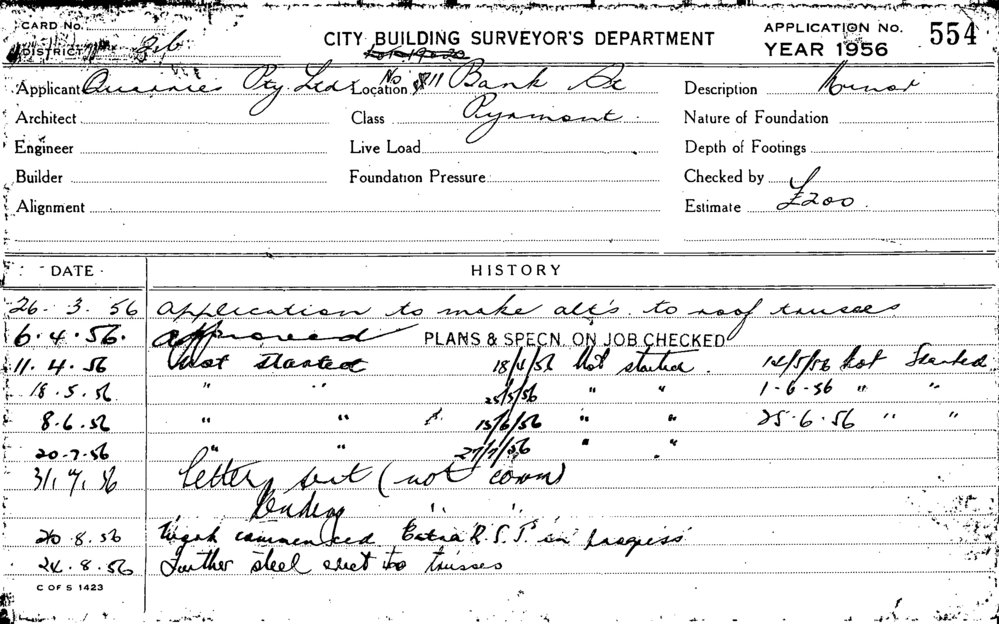 CARD No.
DISTRICT
CITY BUILDING SURVEYOR'S DEPARTMENT
APPLICATION No. 554
YEAR 1956
Applicant Quarries Pty Ltd Location No 811 Bank St Description Minor
Architect Class Pyrmont Nature of Foundation
Engineer Live Load Depth of Footings
Builder Foundation Pressure Checked by
Alignment Estimate £200
DATE HISTORY
26. 3. 56 application to make alt's to roof trusses
6. 4. 56. approved PLANS & SPECN. ON JOB CHECKED
11. 4. 56 Not started 18/4/56 Not started. 14/5/56 Not Started
18. 5. 56 " " 25/5/56 " " 1-6-56 " "
8. 6. 56 " " 15/6/56 " " 25-6-56 " "
20-7-56 " " 27/7/56 " "
31. 7. 56 Letter sent (not comm)
Pending " "
20. 8. 56 Work commenced Extra R.S.J. in progress
24. 8. 56 Further steel erect to trusses
C OF S 1423